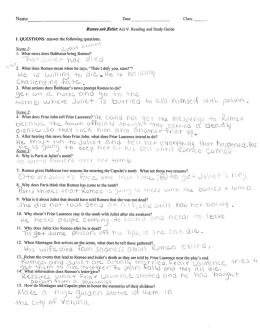 Name Date Class
Romeo and Juliet: Act V. Reading and Study Guide
I. QUESTIONS: answer the following questions.
Scene 1
1. What news does Balthasar bring Romeo?
That Juliet has died
2. What does Romeo mean when he says, "Then I defy you, stars"?
He is willing to die. He is
Challenging fate.
3. What actions does Balthasar's news prompt Romeo to do?
get on a horse and go to the
tomb where Juliet is burried to kill himself with poison.
Scene 2
4. Why does Friar John tell Friar Laurence? He could not get the message to Romeo
because the town officials thought they carried a deadly
disease. So they lock him and another friar up.
5. After hearing this news from Friar John, what does Friar Laurence intend to do?
He must run to Juliet and tell her everything that happened. He
is going to keep her at his cell until Romeo comes
Scene 3
6. Why is Paris at Juliet's tomb?
over her tomb
7. Romeo gives Balthasar two reasons for entering the Capulet's tomb. What are those two reasons?
to see Juliet's face one last time, to get Juliet's ring.
8. Why does Paris think that Romeo has come to the tomb?
Paris thinks that Romeo is going to the bodies + tomb.
9. What is it about Juliet that should have told Romeo that she was not dead?
She did not look dead at all, she still has her beauty.
10. Why doesn't Friar Laurence stay in the tomb with Juliet after she awakens?
He hears people coming and needs to leave
11. Why does Juliet kiss Romeo after he is dead?
To get some poison off his lips, so she can die.
12. When Montague first arrives on the scene, what does he tell those gathered?
his wife died from sadness about Romeo exiled.
13.
Romeo and Juliet are actually married. Friar Laurence tries to
14. What information does Romeo's letter give?
what Friar Laurence stated and he has bought
poison from a
15. How do Montague and Capulet plan to honor the memories of their children?
Make a huge golden statue of them in
the city of Verona.